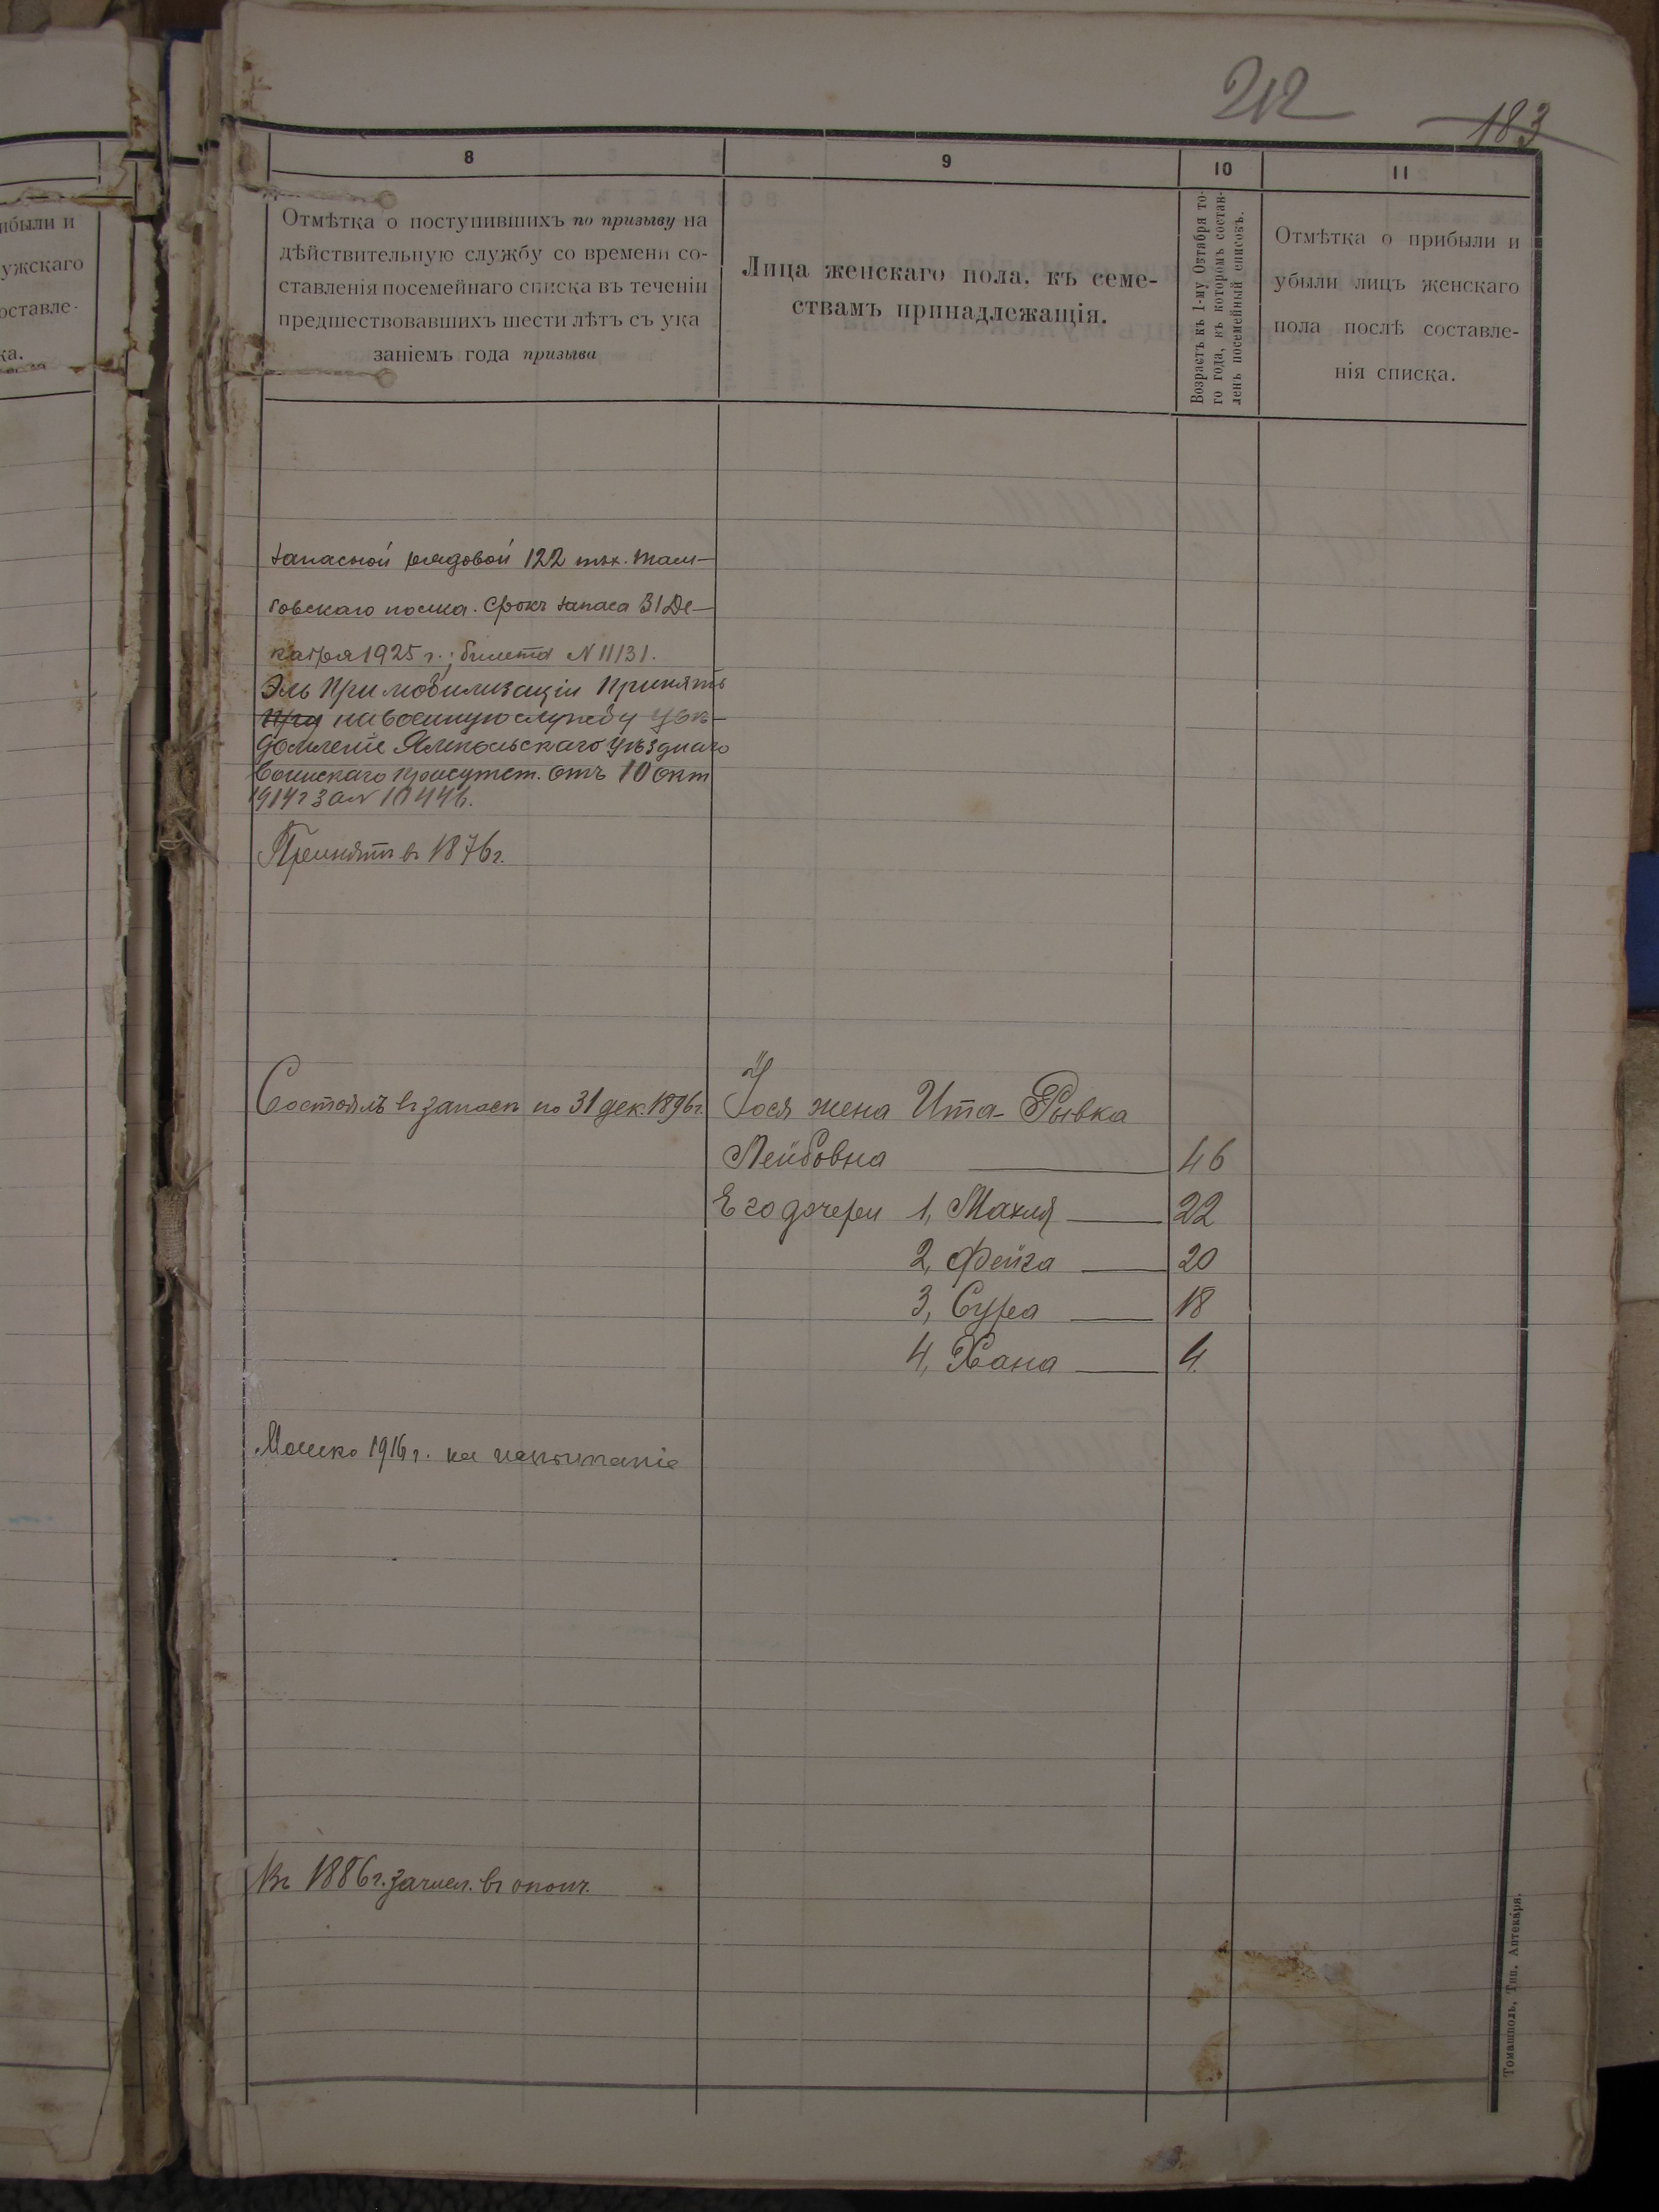 212
183
ибыли и
ужскаго
оставле-
ка.
8
9
10
11
Отмѣтка о поступившихъ по призыву на
дѣйствительную службу со времени со-
ставленія посемейнаго списка въ теченіи
предшествовавшихъ шести лѣтъ съ ука
заніемъ года призыва
Лица женскаго пола, къ семе-
ствамъ принадлежащія.
Возрастъ къ 1-му Октября то-
го года, въ которомъ состав-
ленъ посемейный списокъ.
Отмѣтка о прибыли и
убыли лицъ женскаго
пола послѣ составле-
нія списка.
Запасной рядовой 122 пѣх. Там-
бовскаго полка. Срокъ запаса 31 Де-
кабря 1925 г.; билетъ N 11131.
Эль При мобилизаціи Принятъ
При на военную службу увѣ-
домленіе Ямпольскаго уѣзднаго
Воинскаго присутст. отъ 10 окт
1914 г за N 10446.
Принятъ въ 1876 г.
Состоялъ въ запасѣ по 31 дек. 1896 г.
Іося жена Ита-Рывка
Лейбовна 46
Его дочери 1, Махля 22
2, Фейга 20
3, Сура 18
4, Хана 4.
Мошко 1916 г. на испытаніе
Въ 1886 г. зачисл. въ ополч.
Томашполь, Тип. Аптекаря.